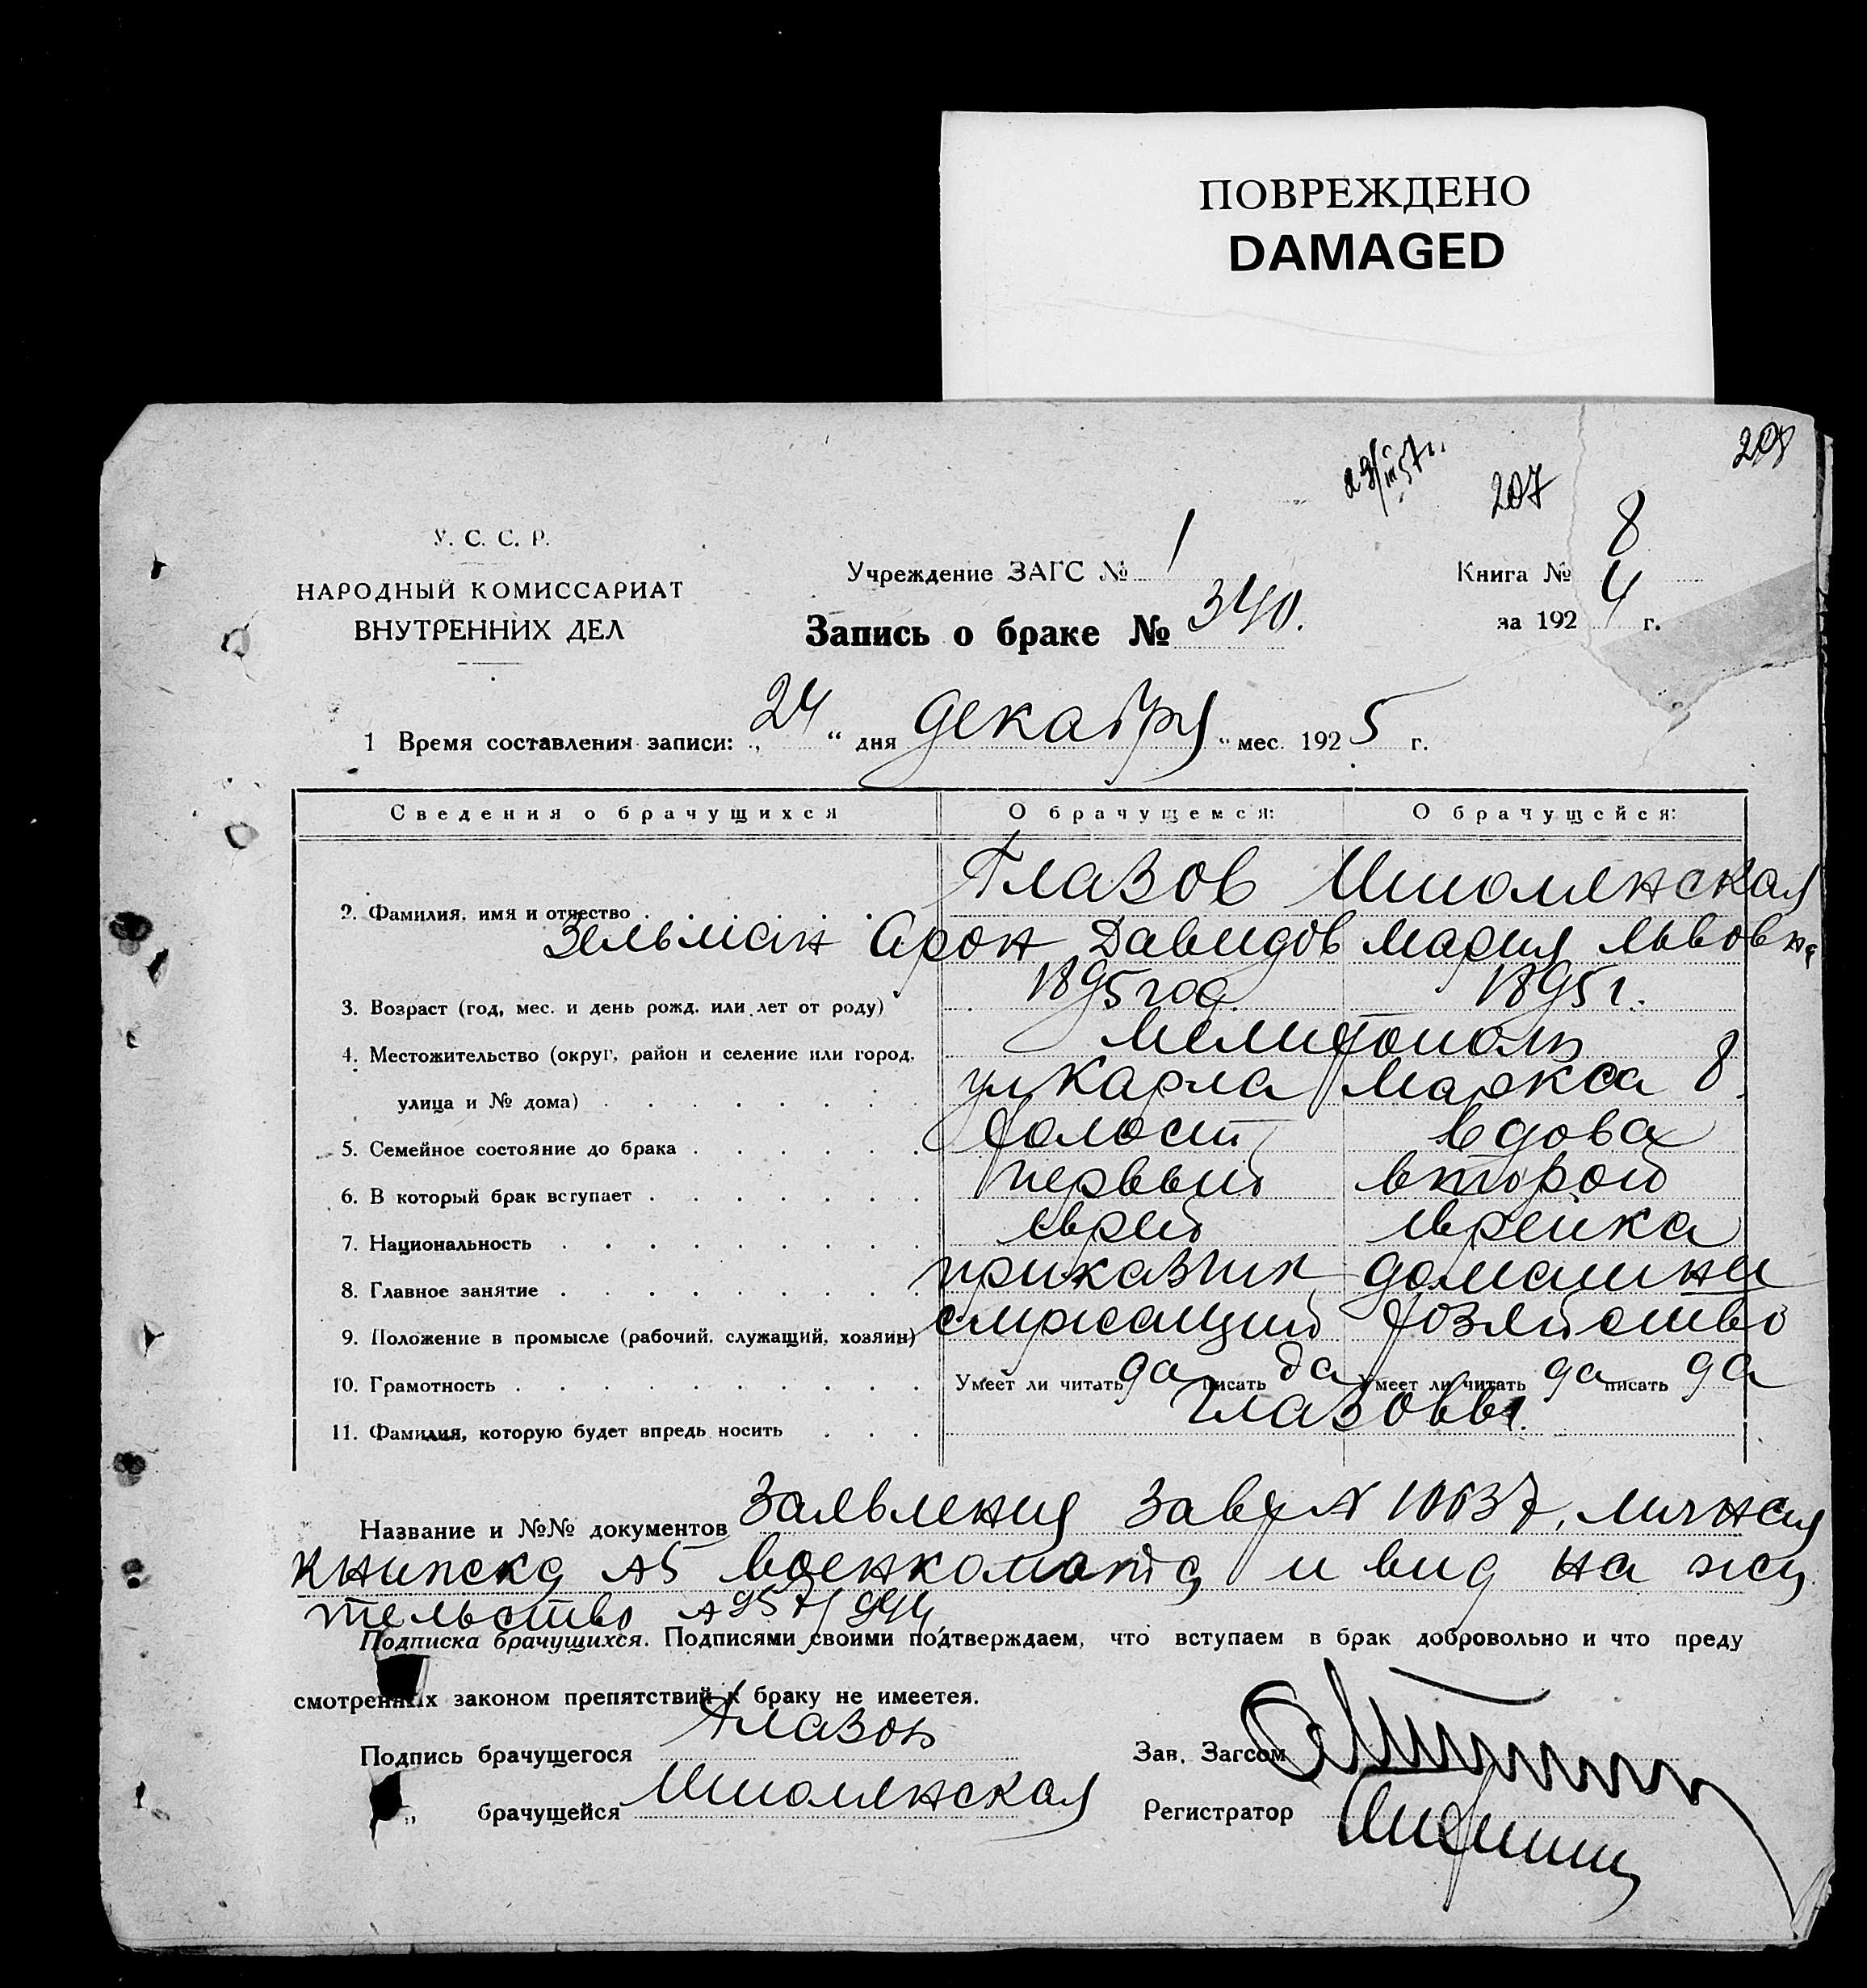 ПОВРЕЖДЕНО
DAMAGED
207
У. С. С. Р.
НАРОДНЫЙ КОМИССАРИАТ
ВНУТРЕННИХ ДЕЛ
Учреждение ЗАГС № 1
Книга № 8
Запись о браке № 340.
за 1924 г.
1 Время составления записи: „24“ дня декабря „ мес. 1925 г.
Сведения о брачущихся О брачущемся: О брачущейся:
Глазов Шполянская
2. Фамилия, имя и отчество
Зельман Арон Давидов Мария Львовна
3. Возраст (год, мес. и день рожд. или лет от роду) 1895 год 1895 г.
4. Местожительство (округ, район и селение или город, Мелитополь
улица и № дома) ул Карла Маркса 8
5. Семейное состояние до брака холост вдова
6. В который брак вступает первый второй
7. Национальность еврей еврейка
8. Главное занятие приказчик домашнее
9. Положение в промысле (рабочий, служащий, хозяин) служащий хозяйство
10. Грамотность Умеет ли читать да писать да Умеет ли читать да писать да
11. Фамилия, которую будет впредь носить Глазовы.
Название и №№ документов Заявления личная
книжка военкомата и вид на жи
тельство
Подписка брачущихся. Подписями своими подтверждаем, что вступаем в брак добровольно и что преду
смотренных законом препятствий к браку не имеетея.
Подпись брачущегося Глазов Зав. Загсом
„ брачущейся Шполянская Регистратор